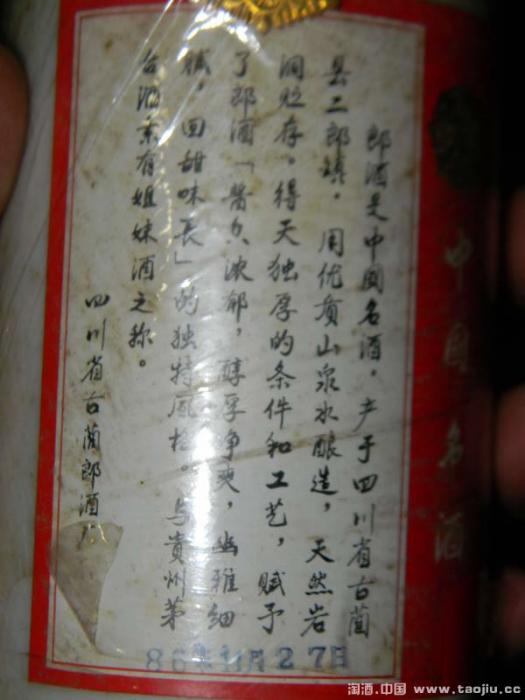 郎酒是中国名酒。产于四川省古蔺
县二郎镇。用优质山泉水酿造，天然岩
洞贮存。得天独厚的条件和工艺，赋予
了郎酒「酱香浓郁，醇厚净爽，幽雅细
腻，回甜味长」的独特风格。与贵州茅
台酒素有姐妹酒之称。
四川省古蔺郎酒厂
86年11月27日
中国名酒
淘酒.中国 www.taojiu.cc